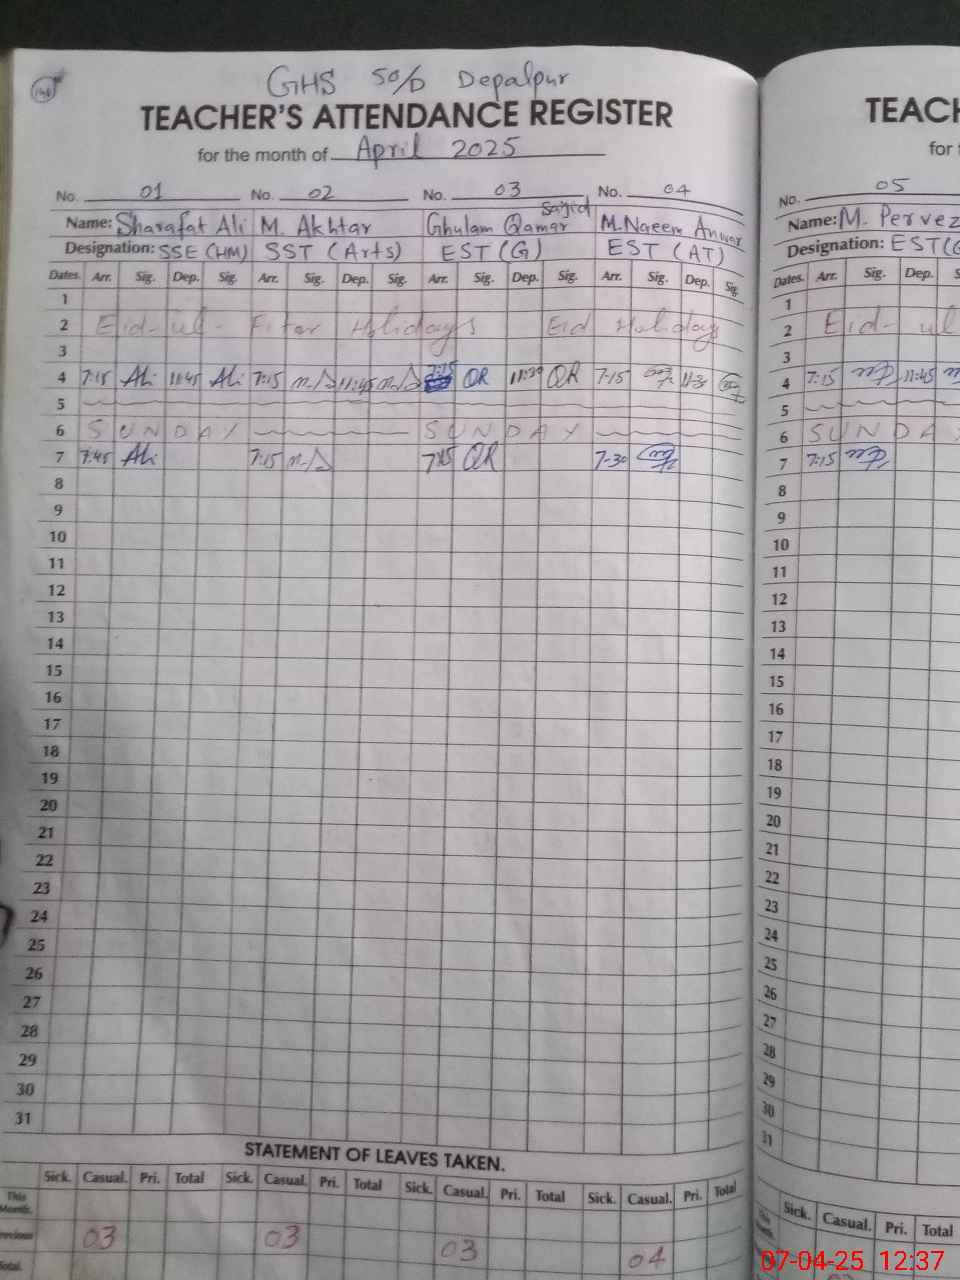 146
GHS 50/D Depalpur
TEACHER'S ATTENDANCE REGISTER
for the month of April 2025
No. 01 No. 02 No. 03 No. 04
Name: Sharafat Ali M. Akhtar Ghulam Qamar Sajid M. Naeem Anwar
Designation: SSE (HM) SST (Arts) EST (G) EST (AT)
Dates. Arr. Sig. Dep. Sig. Arr. Sig. Dep. Sig. Arr. Sig. Dep. Sig. Arr. Sig. Dep. Sig.
1
2 Eid-ul-Fitar Holidays Eid Holiday
3
4 7:15 Ali 11:45 Ali 7:15 11:45 7:15 QR QR 7:15
5
6 SUNDAY SUNDAY
7 7:45 Ali 7:15 7:15 QR 7-30
8
9
10
11
12
13
14
15
16
17
18
19
20
21
22
23
24
25
26
27
28
29
30
31
STATEMENT OF LEAVES TAKEN.
Sick. Casual. Pri. Total Sick. Casual. Pri. Total Sick. Casual. Pri. Total Sick. Casual. Pri. Total
This Month.
03 03 03 04
Total.
TEACH
for t
No. 05
Name: M. Pervez
Designation: EST (G
Dates. Arr. Sig. Dep. S
1
2 Eid-ul
3
4 7:15 11:45
5
6 SUNDA
7 7:15
8
9
10
11
12
13
14
15
16
17
18
19
20
21
22
23
24
25
26
27
28
29
30
31
Sick. Casual. Pri. Total
This Month.
07-04-25 12:37